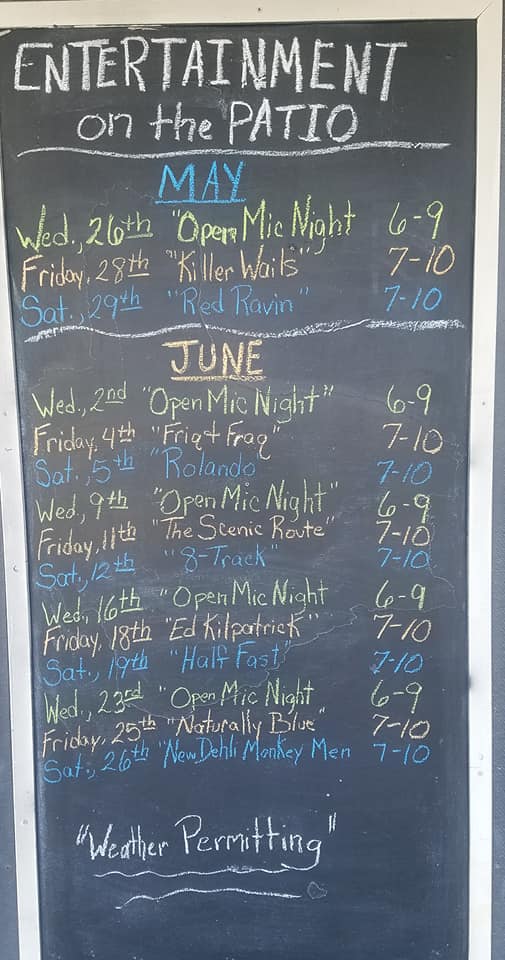 ENTERTAINMENT
on the PATIO
MAY
Wed., 26th "Open Mic Night 6-9
Friday, 28th "Killer Wails" 7-10
Sat., 29th "Red Ravin" 7-10
JUNE
Wed., 2nd "Open Mic Night" 6-9
Friday, 4th "Friq + Fraq" 7-10
Sat., 5th "Rolando 7-10
Wed., 9th "Open Mic Night" 6-9
Friday, 11th "The Scenic Route" 7-10
Sat., 12th "8-Track" 7-10
Wed., 16th "Open Mic Night 6-9
Friday, 18th "Ed Kilpatrick" 7-10
Sat., 19th "Half Fast" 7-10
Wed., 23rd "Open Mic Night 6-9
Friday, 25th "Naturally Blue" 7-10
Sat., 26th "New Dehli Monkey Men 7-10
"Weather Permitting"